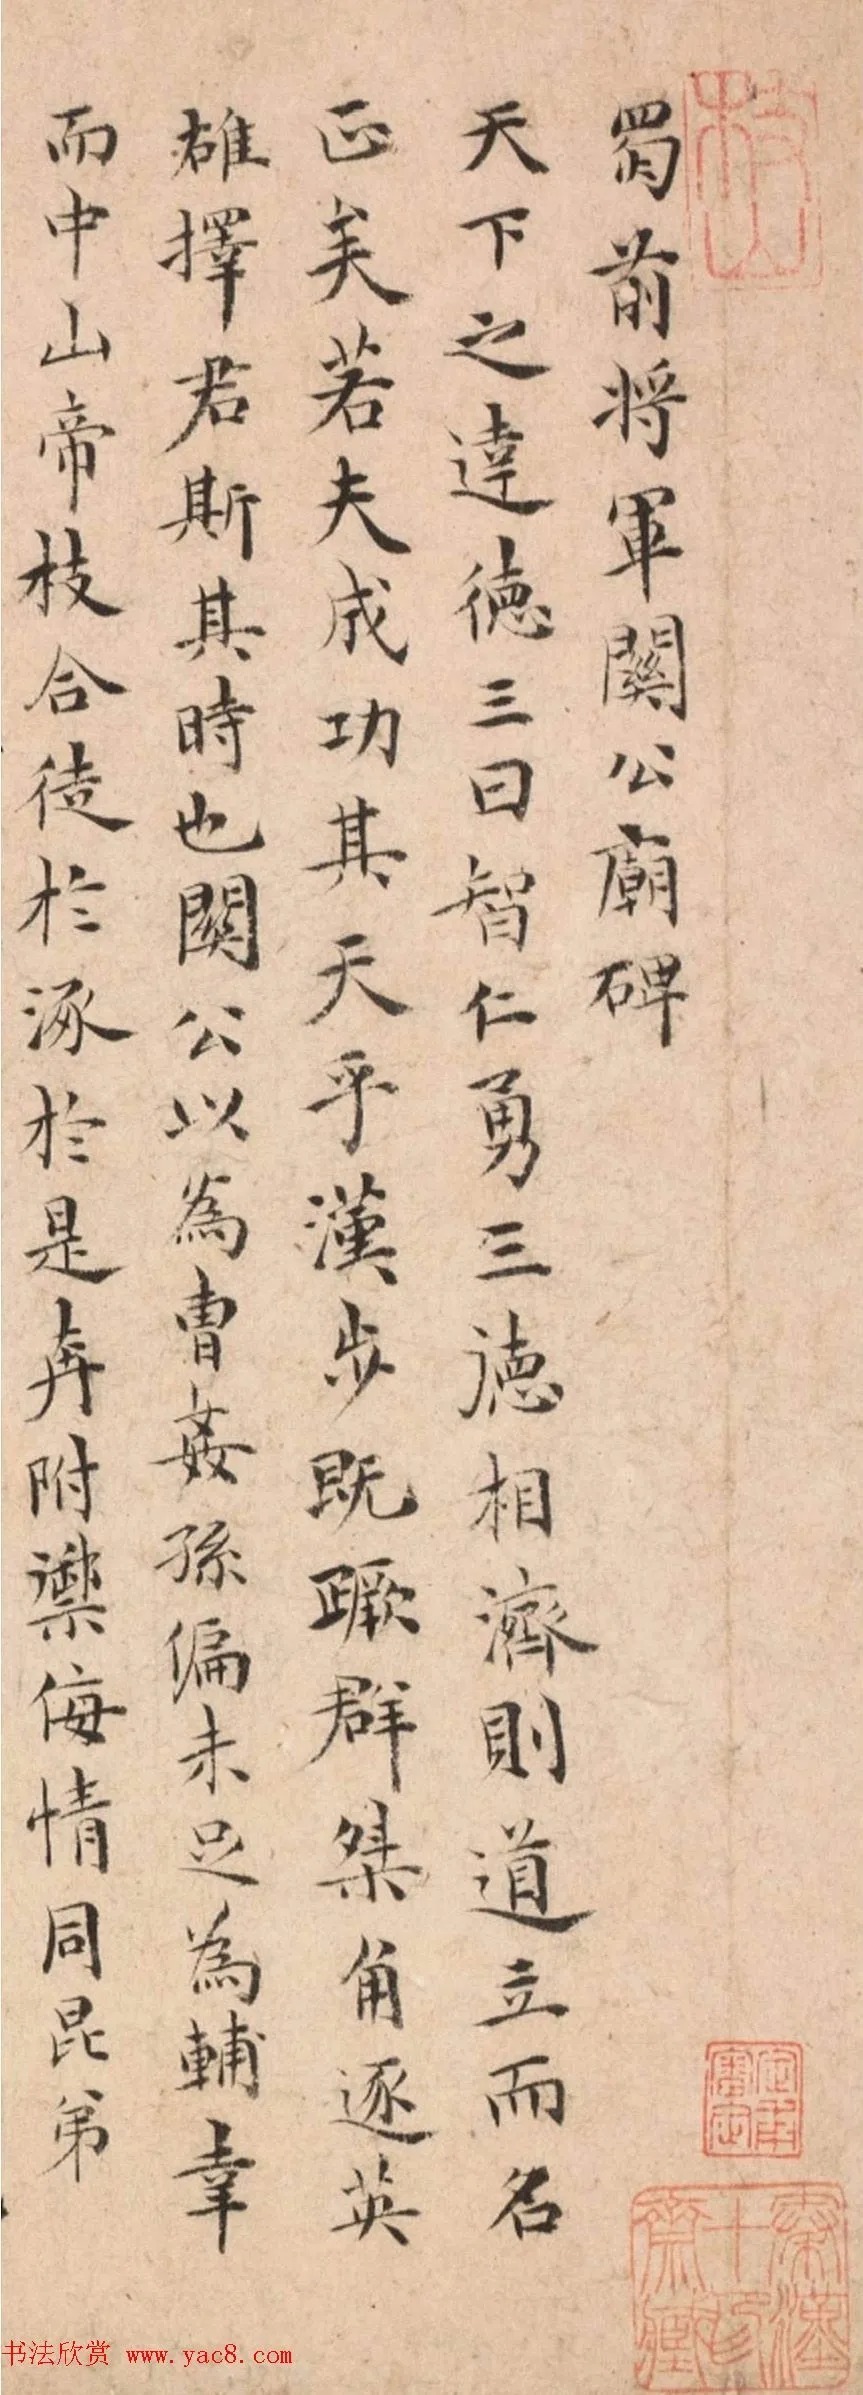 蜀前将軍關公廟碑
天下之達徳三曰智仁勇三徳相濟則道立而名
正矣若夫成功其天乎漢步既蹶群桀角逐英
雄擇君斯其時也關公以為曹姦孫偏未足為輔幸
而中山帝枝合徒於涿於是奔附禦侮情同昆弟
枝山
书法欣赏 www.yac8.com